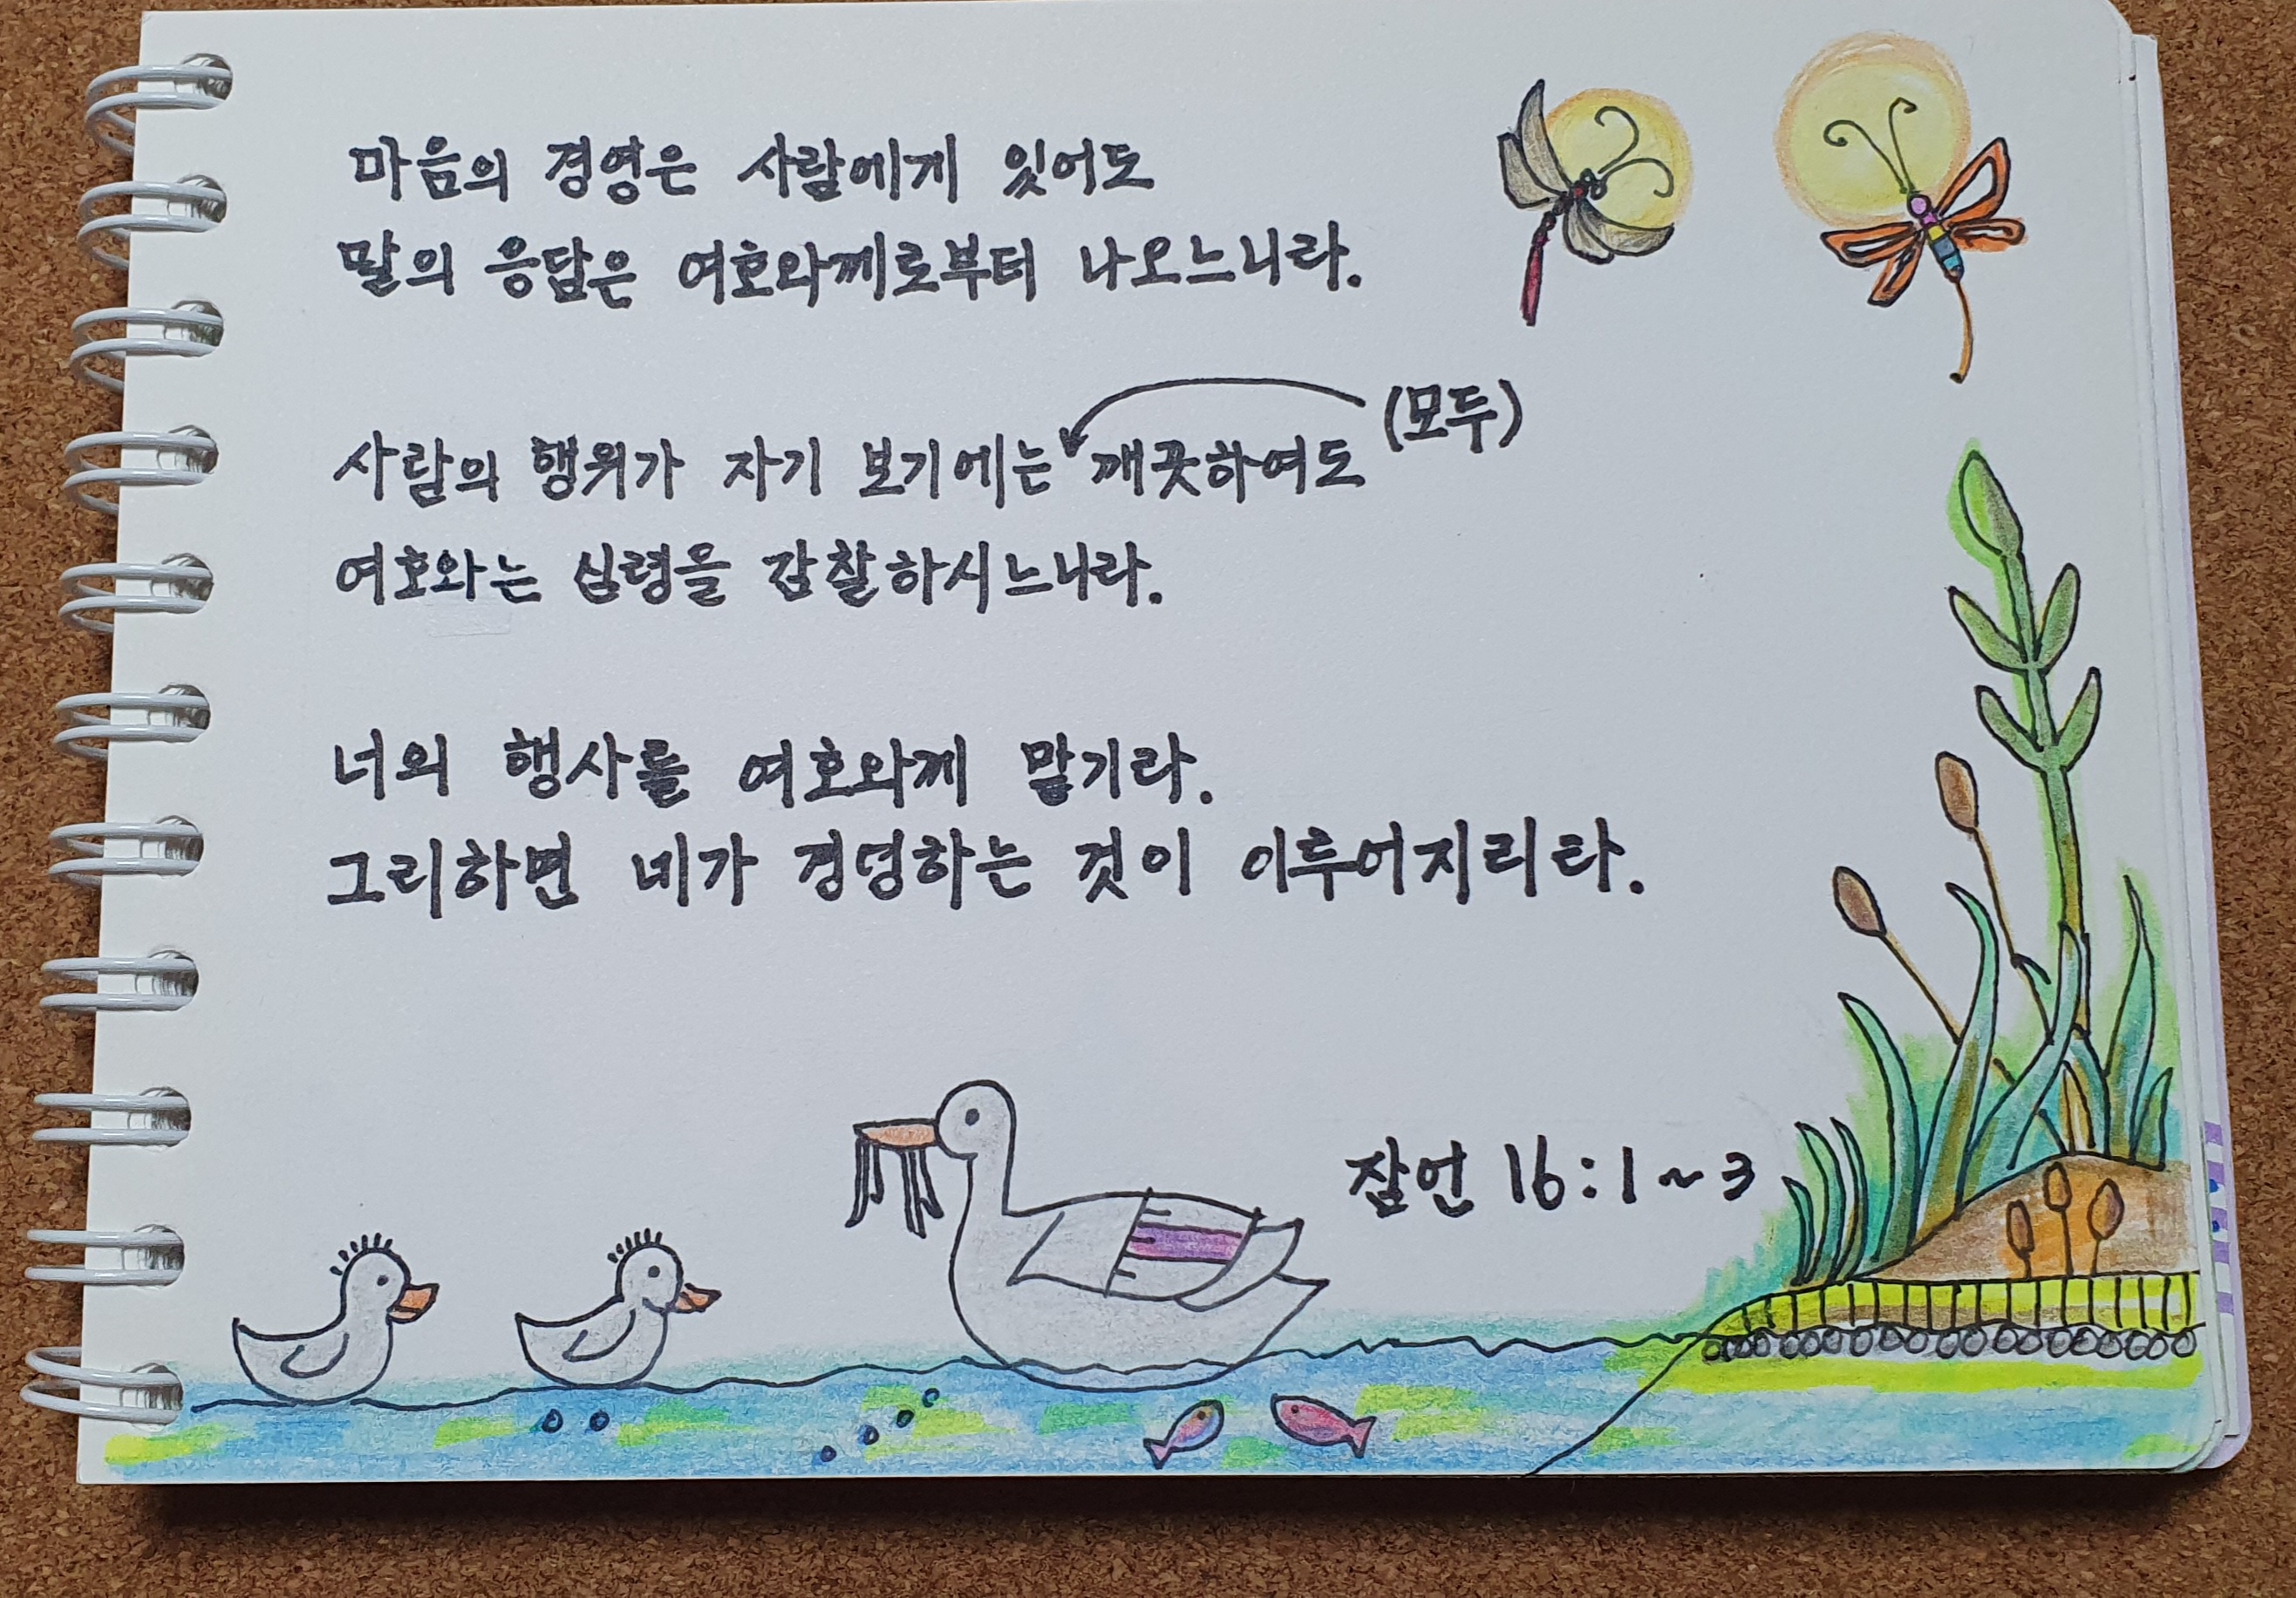 마음의 경영은 사람에게 있어도
말의 응답은 여호와께로부터 나오느니라.
(모두)
사람의 행위가 자기 보기에는 깨끗하여도
여호와는 심령을 감찰하시느니라.
너의 행사를 여호와께 맡기라.
그리하면 네가 경영하는 것이 이루어지리라.
잠언 16:1~3